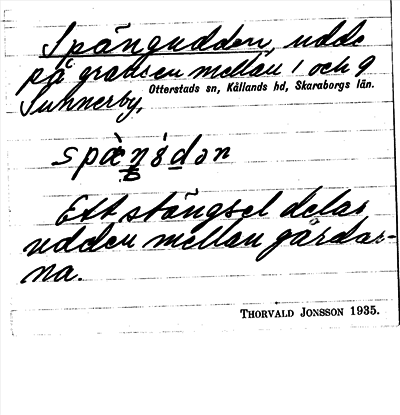 Spångudden, udde
på gränsen mellan 1 och 9
Otterstads sn, Kållands hd, Skaraborgs län.
Sunnerby,
Ett stängsel delar
udden mellan gårdar-
na.
THORVALD JONSSON 1935.